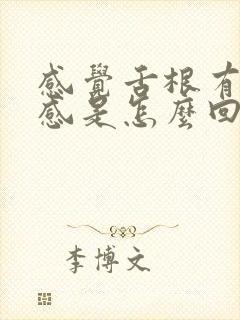 感覺舌根有
感是怎麼回
李博文